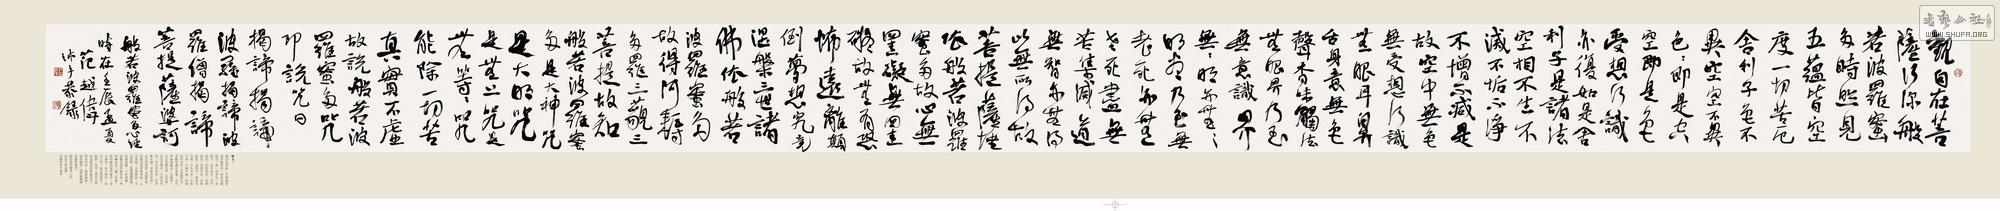 觀自在菩
薩行深般
若波羅蜜
多時照見
五蘊皆空
度一切苦厄
舍利子色不
異空空不異
色色即是空
空即是色
受想行識
亦復如是舍
利子是諸法
空相不生不
滅不垢不淨
不增不減是
故空中無色
無受想行識
無眼耳鼻
舌身意無色
聲香味觸法
無眼界乃至
無意識界
無無明亦無
無明盡乃至無
老死亦無
老死盡無
苦集滅道
無智亦無得
以無所得故
菩提薩埵
依般若波羅
蜜多故心無
罣礙無罣
礙故無有恐
怖遠離顛
倒夢想究竟
涅槃三世諸
佛依般若
波羅蜜多
故得阿耨
多羅三藐三
菩提故知
般若波羅蜜
多是大神咒
是大明咒
是無上咒是
無等等咒
能除一切苦
真實不虛
故說般若波
羅蜜多咒
即說咒曰
揭諦揭諦
波羅揭諦波
羅僧揭諦
菩提薩婆訶
般若波羅蜜多心經
時在壬辰孟夏
范超偉
沐手恭錄
書藝公社
WWW.SHUFA.ORG